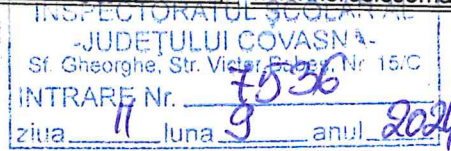 INSPECTORATUL ȘCOLAR AL
-JUDEȚULUI COVASNA-
Sf. Gheorghe, Str. Victor Babeș Nr. 15/C
INTRARE Nr. 7536
ziua 11 luna 9 anul 2024